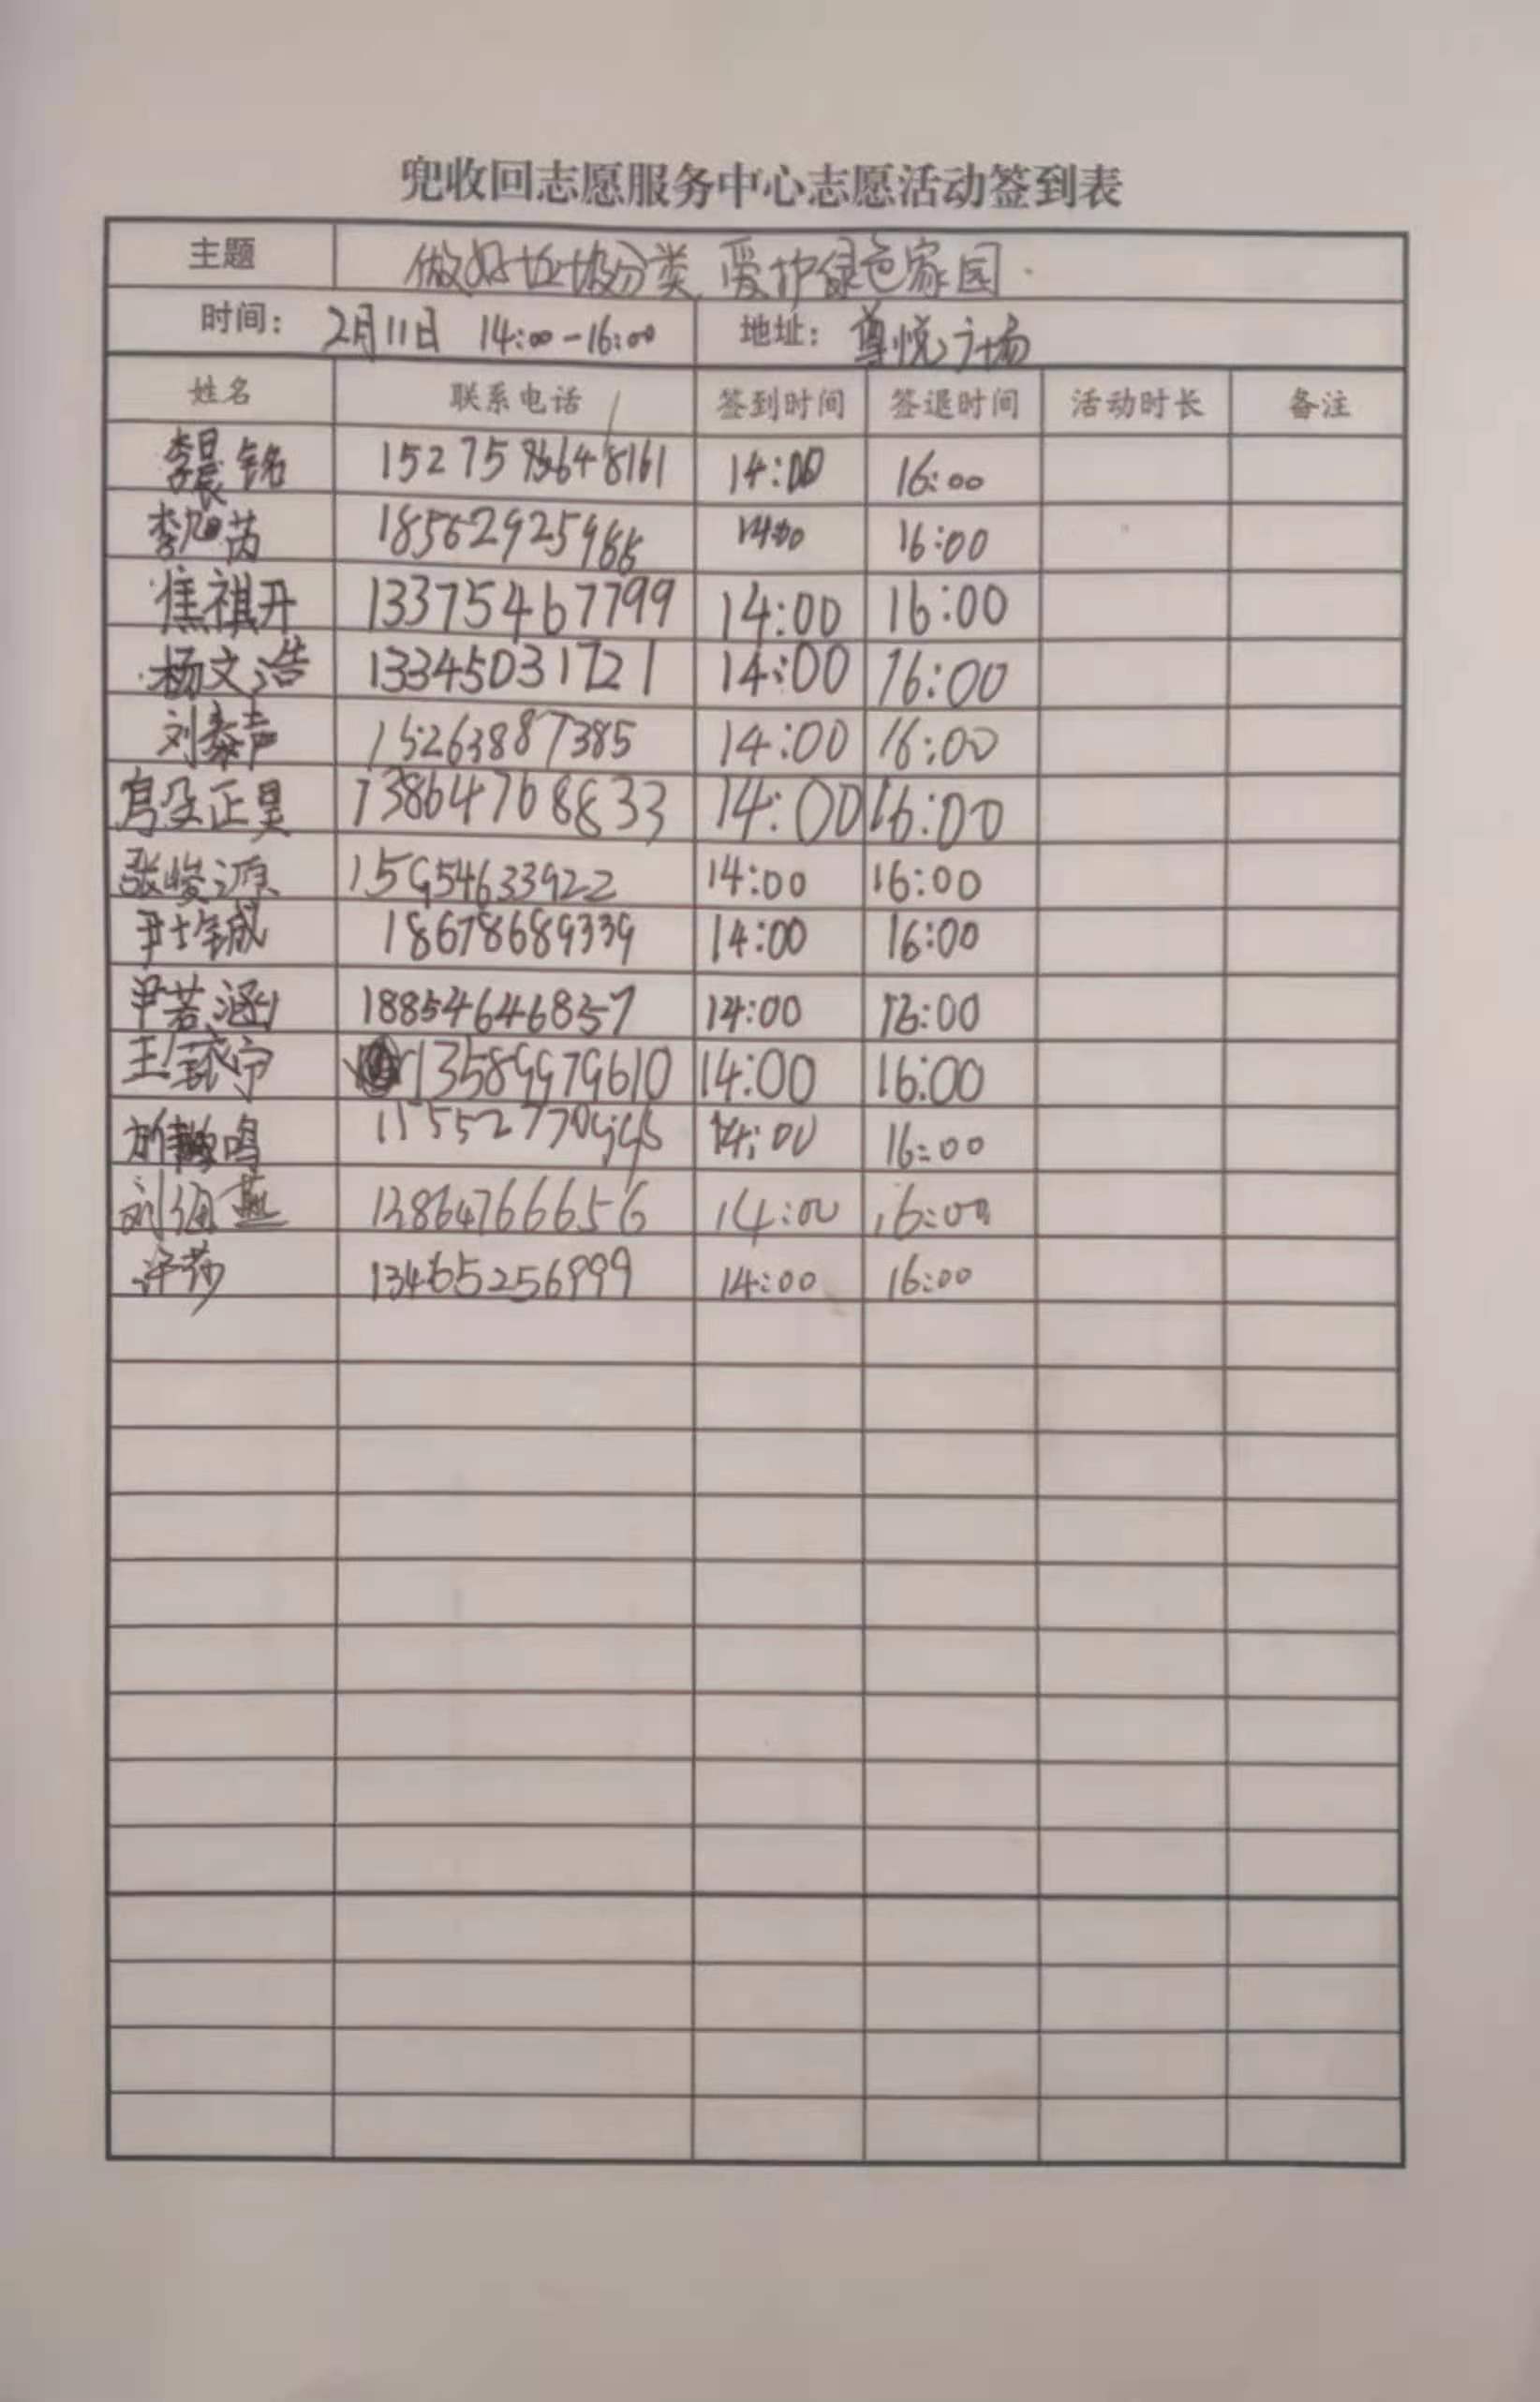 兜收回志愿服务中心志愿活动签到表
主题 做好垃圾分类 爱护绿色家园
时间： 2月11日 14:00-16:00 地址： 尊悦广场
姓名 联系电话 签到时间 签退时间 活动时长 备注
李晨铭 14:00 16:00
李旭芮 18562925988 14:00 16:00
焦祺开 13375467799 14:00 16:00
杨文浩 13345031721 14:00 16:00
刘泰声 15263887385 14:00 16:00
正昊 13864768833 14:00 16:00
张峻源 15954633922 14:00 16:00
尹士铖 18678689339 14:00 16:00
尹若涵 18854646857 14:00 16:00
王宁 13589979610 14:00 16:00
鸣 14:00 16:00
刘燕 13864766656 14:00 16:00
许莎 13465256999 14:00 16:00